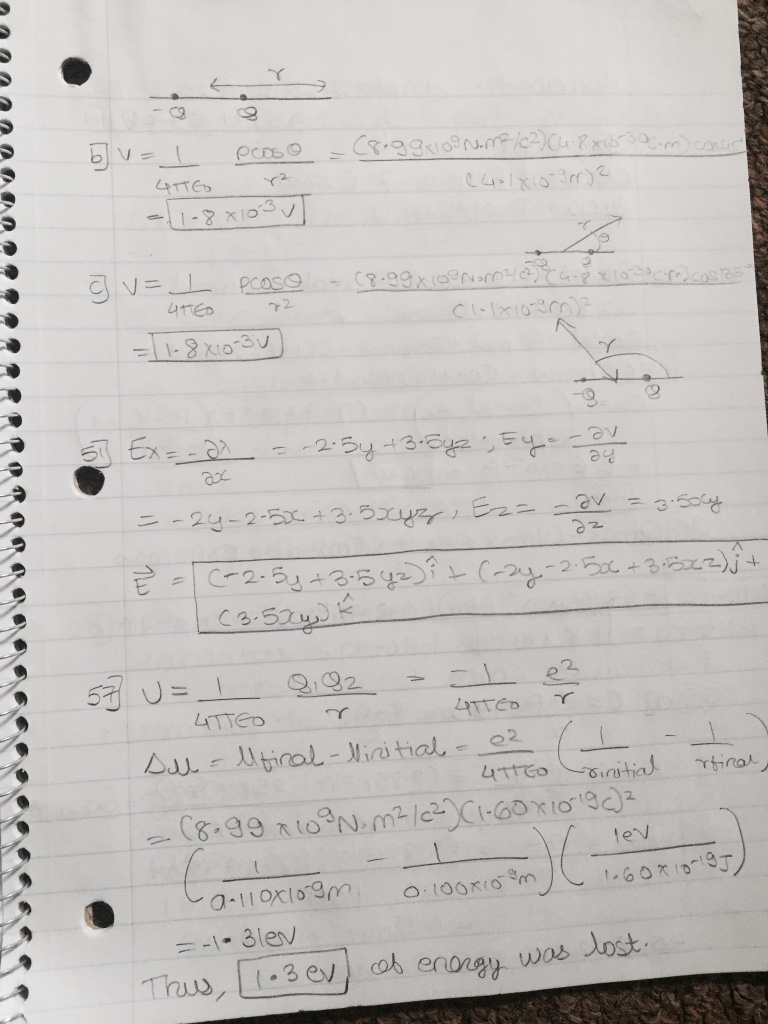 r
-Q Q
b] V = 1/4πε0 pcosθ/r² = (8.99x10⁹N.m²/c²)(4.8x10⁻³⁰c.m)cos45°/(4.1x10⁻⁹m)²
= 1.8 x10⁻³ V
r θ
-Q Q
c] V = 1/4πε0 pcosθ/r² = (8.99x10⁹N.m²/c²)(4.8x10⁻³⁰c.m)cos135°/(1.1x10⁻⁹m)²
= 1.8x10⁻³V
r
-Q Q
51] Ex = -∂λ/∂x = -2.5y+3.5yz ; Ey = -∂V/∂y
= -2y-2.5x+3.5xyz, Ez = -∂V/∂z = 3.5xy
E⃗ = (-2.5y+3.5yz)î + (-2y-2.5x+3.5xz)ĵ +
(3.5xy)k̂
57] U = 1/4πε0 Q1Q2/r = -1/4πε0 e²/r
Δu = Ufinal - Uinitial = e²/4πε0 (1/rinitial - 1/rfinal)
= (8.99 x10⁹N.m²/c²)(1.60x10⁻¹⁹c)²
(1/0.110x10⁻⁹m - 1/0.100x10⁻⁹m)(1eV/1.60x10⁻¹⁹J)
= -1.31eV
Thus, 1.3 ev of energy was lost.